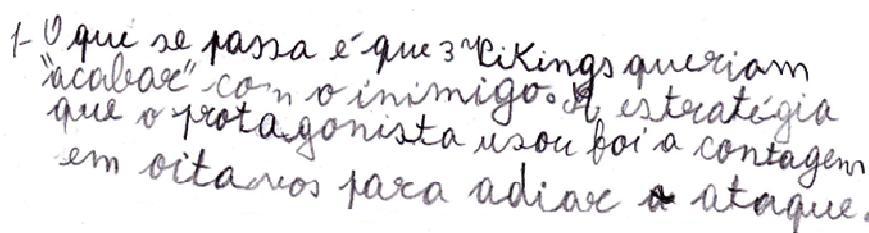 1- O que se passa é que 3 vikings queriam
"acabar" com o inimigo. A estratégia
que o protagonista usou foi a contagem
em oitavos para adiar o ataque.